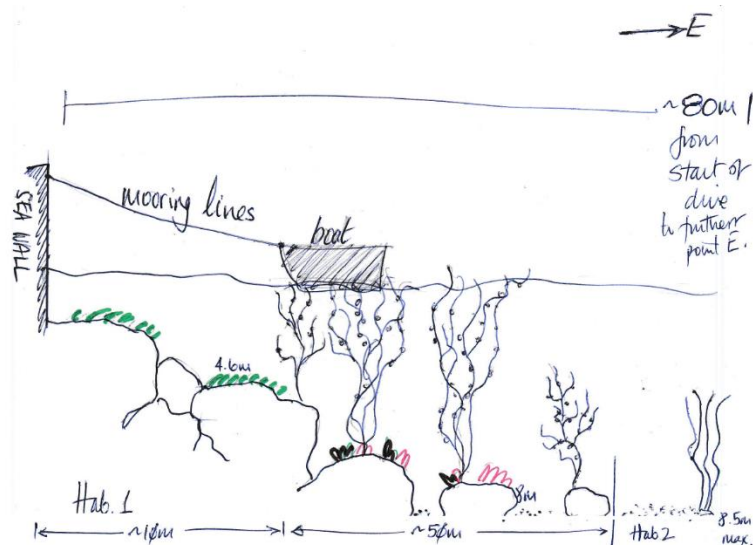 E
~80m
from
start of
dive
to furthest
point E.
SEA WALL
mooring lines
boat
4.6m
8m
Hab. 1
~10m
~50m
Hab 2
8.5m
max.